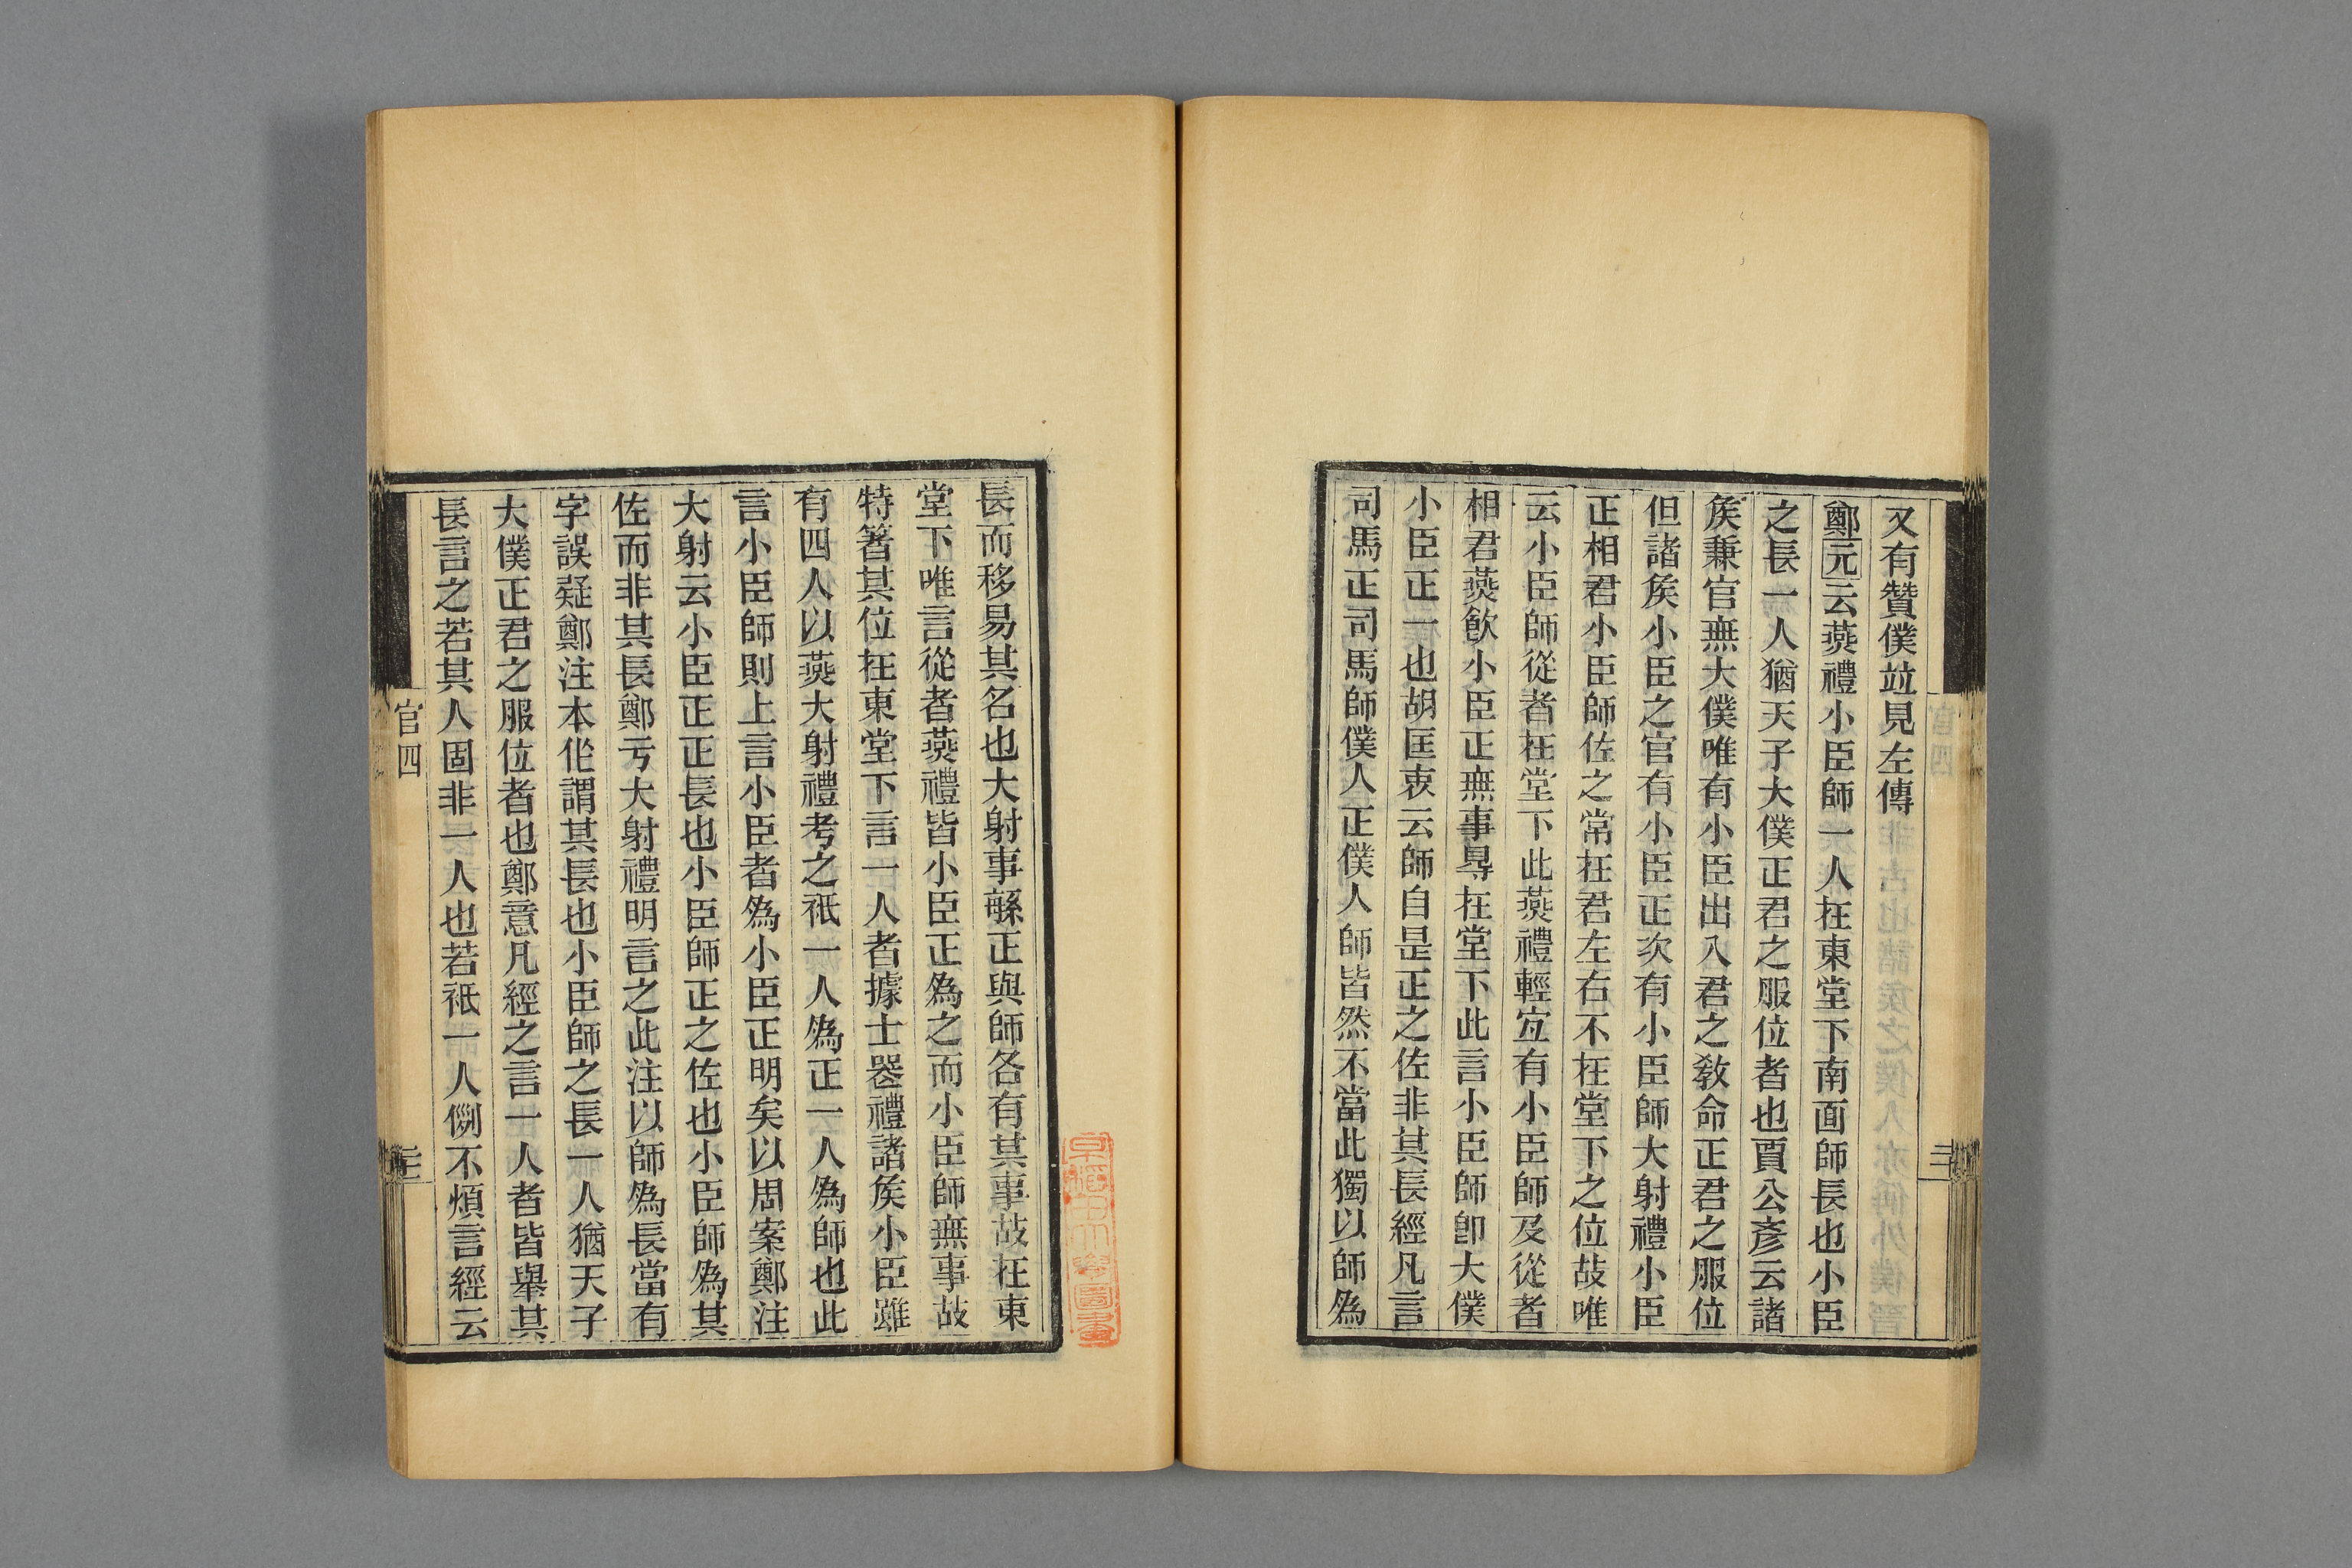 又有贊僕竝見左傳
鄭元云燕禮小臣師一人在東堂下南面師長也小臣
之長一人猶天子大僕正君之服位者也賈公彥云諸
矦兼官無大僕唯有小臣出入君之敎命正君之服位
但諸矦小臣之官有小臣正次有小臣師大射禮小臣
正相君小臣師佐之常在君左右不在堂下之位故唯
云小臣師從者在堂下此燕禮輕宐有小臣師及從者
相君燕飮小臣正無事㝵在堂下此言小臣師卽大僕
小臣正一也胡匡衷云師自是正之佐非其長經凡言
司馬正司馬師僕人正僕人師皆然不當此獨以師爲
長而移易其名也大射事緐正與師各有其事故在東
堂下唯言從者燕禮皆小臣正爲之而小臣師無事故
特箸其位在東堂下言一人者據士喪禮諸矦小臣雖
有四人以燕大射禮考之祇一人爲正一人爲師也此
言小臣師則上言小臣者爲小臣正明矣以周案鄭注
大射云小臣正正長也小臣師正之佐也小臣師爲其
佐而非其長鄭亏大射禮明言之此注以師爲長當有
字誤疑鄭注本作謂其長也小臣師之長一人猶天子
大僕正君之服位者也鄭意凡經之言一人者皆舉其
長言之若其人固非一人也若祇一人側不煩言經云
官四
早稻田大學圖書